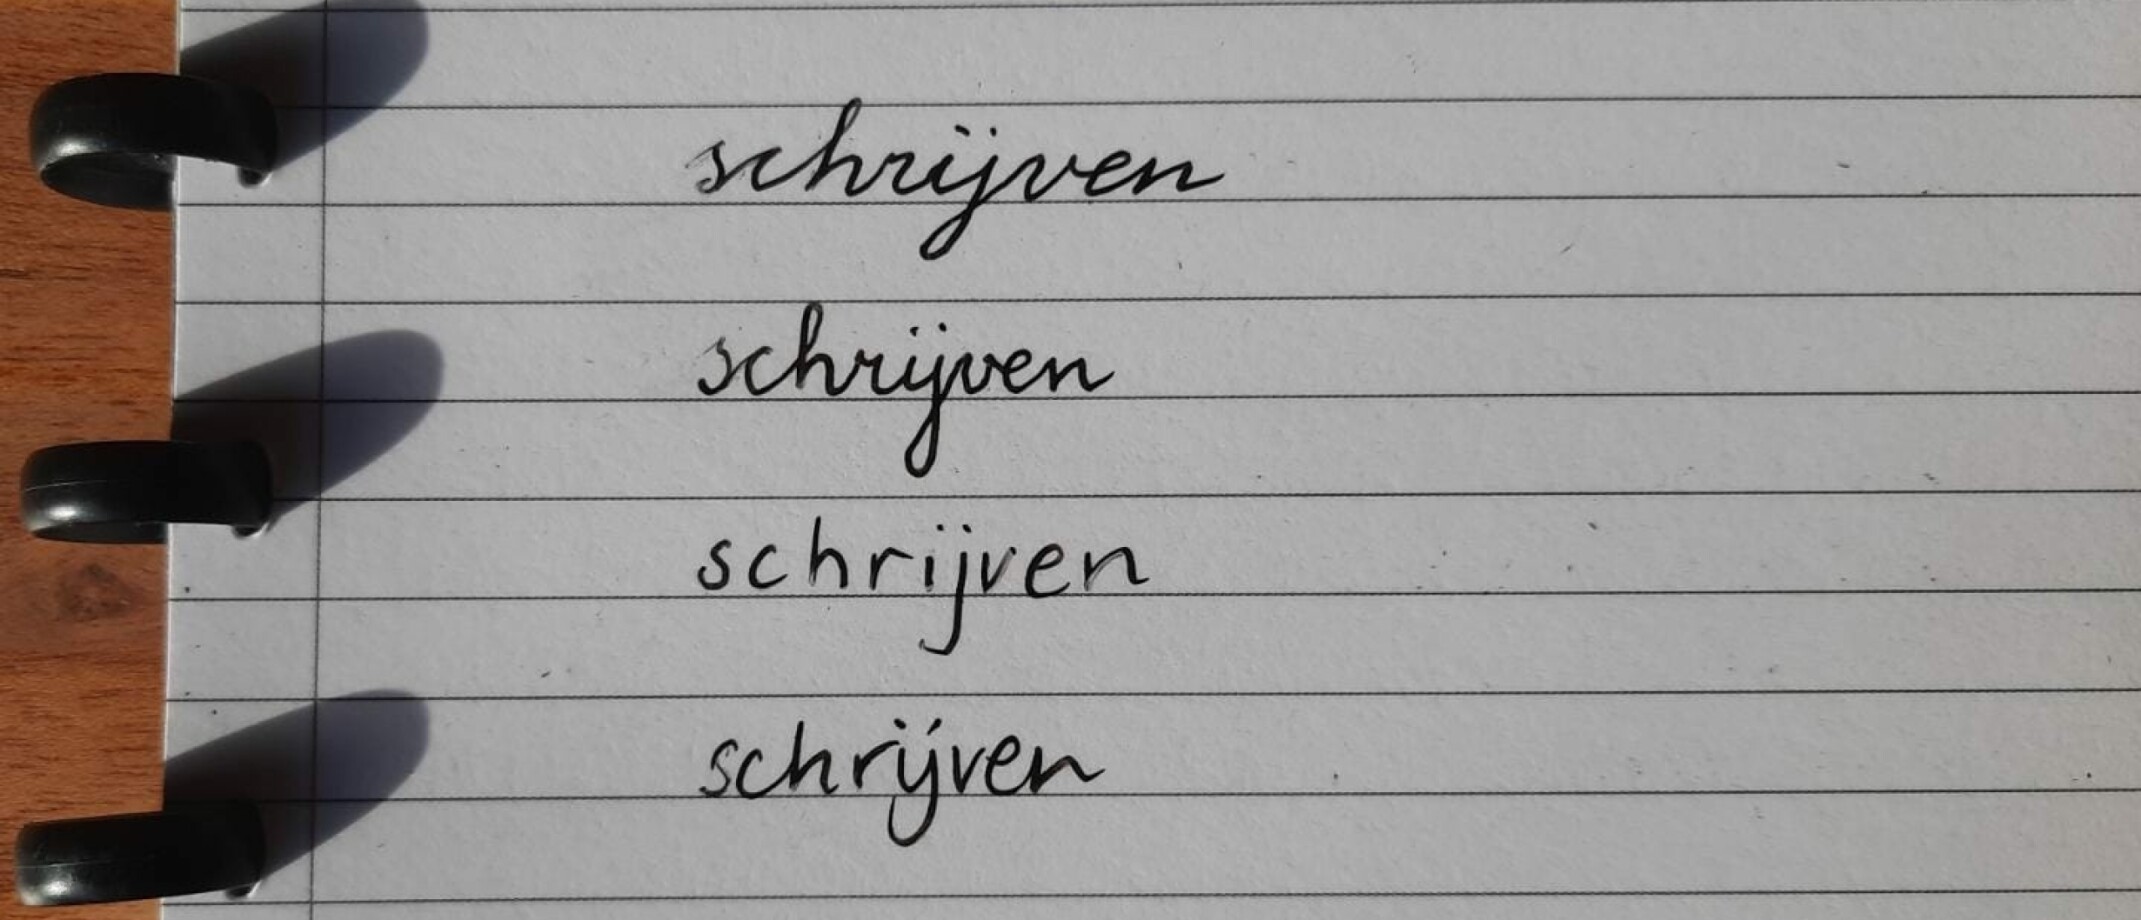 schrijven
schrijven
schrijven
schrijven